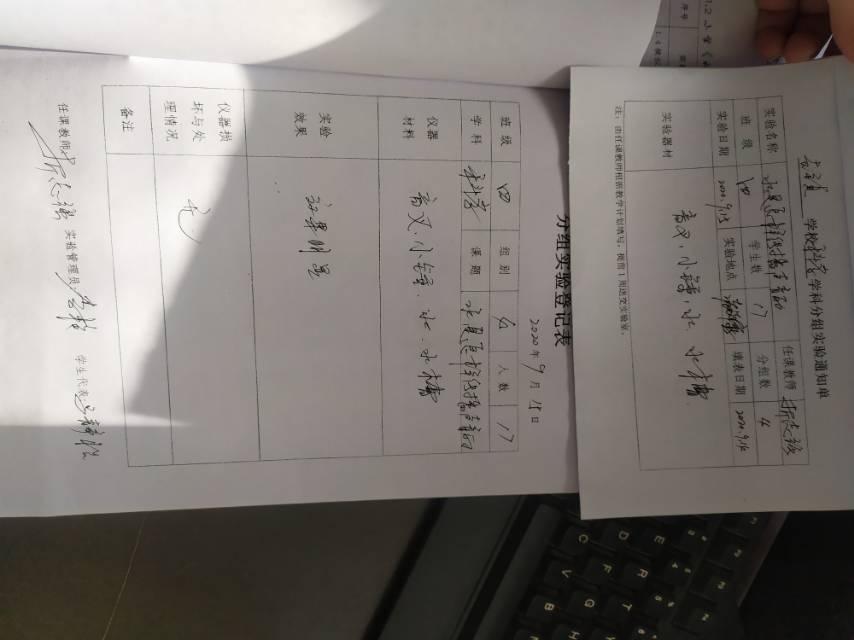 学校科学学科分组实验通知单
实验名称 水是怎样传播声音的 任课教师
班级 四 学生数 17 分组数 4
实验日期 2020.9.15 实验地点 填表日期 2020.9.14
实验器材 音叉、小锤、水、水槽
注：由任课教师根据教学计划填写，提前1周送交实验室。
分组实验登记表
2020年9月15日
班级 四 组别 人数 17
学科 科学 课题 水是怎样传播声音的
仪器材料 音叉、小锤、水、水槽
实验效果 效果明显
仪器损坏与处理情况 无
备注
任课教师 实验管理员 学生代表
1.2
序号
C D E
V F R
B G T
N H